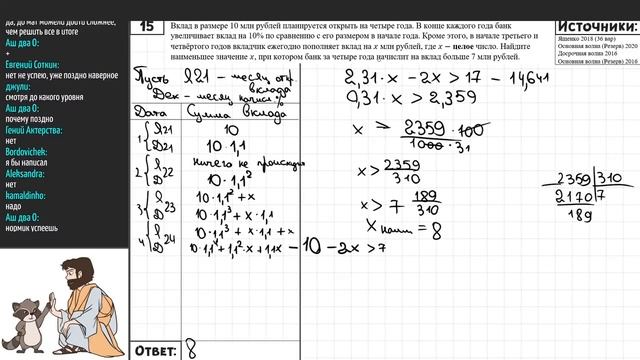 да, до мат можело драть сложнее,
чем решить все в итоге
Аш два О:
+
Евгений Соткин:
нет не успею, уже поздно наверное
джули:
смотря до какого уровня
Аш два О:
почему поздно
Гений Актерства:
нет
Bordovichek:
я бы написал
Aleksandra:
нет
kamaldinho:
надо
Аш два О:
нормик успеешь
15
Вклад в размере 10 млн рублей планируется открыть на четыре года. В конце каждого года банк
увеличивает вклад на 10% по сравнению с его размером в начале года. Кроме этого, в начале третьего и
четвёртого годов вкладчик ежегодно пополняет вклад на x млн рублей, где x − целое число. Найдите
наименьшее значение x, при котором банк за четыре года начислит на вклад больше 7 млн рублей.
Источники:
Ященко 2018 (36 вар)
Основная волна (Резерв) 2020
Досрочная волна 2016
Основная волна (Резерв) 2016
Пусть Я21 – месяц отк
вклада
Дек – месяц начисл %
Дата Сумма вклада
1 Я21 10
Д21 10·1,1
2 Я22 ничего не происходит
Д 10·1,1²
3 Я23 10·1,1²+x
Д 10·1,1³+x·1,1
4 Я24 10·1,1³+x·1,1+x
Д 10·1,1⁴+1,1²·x+1,1x − 10 − 2x > 7
2,31·x − 2x > 17 − 14,641
0,31·x > 2,359
x > 2359·100 / 1000·31
x > 2359/310
x > 7 189/310
x наим = 8
2359 310
2170 7
189
ОТВЕТ: 8